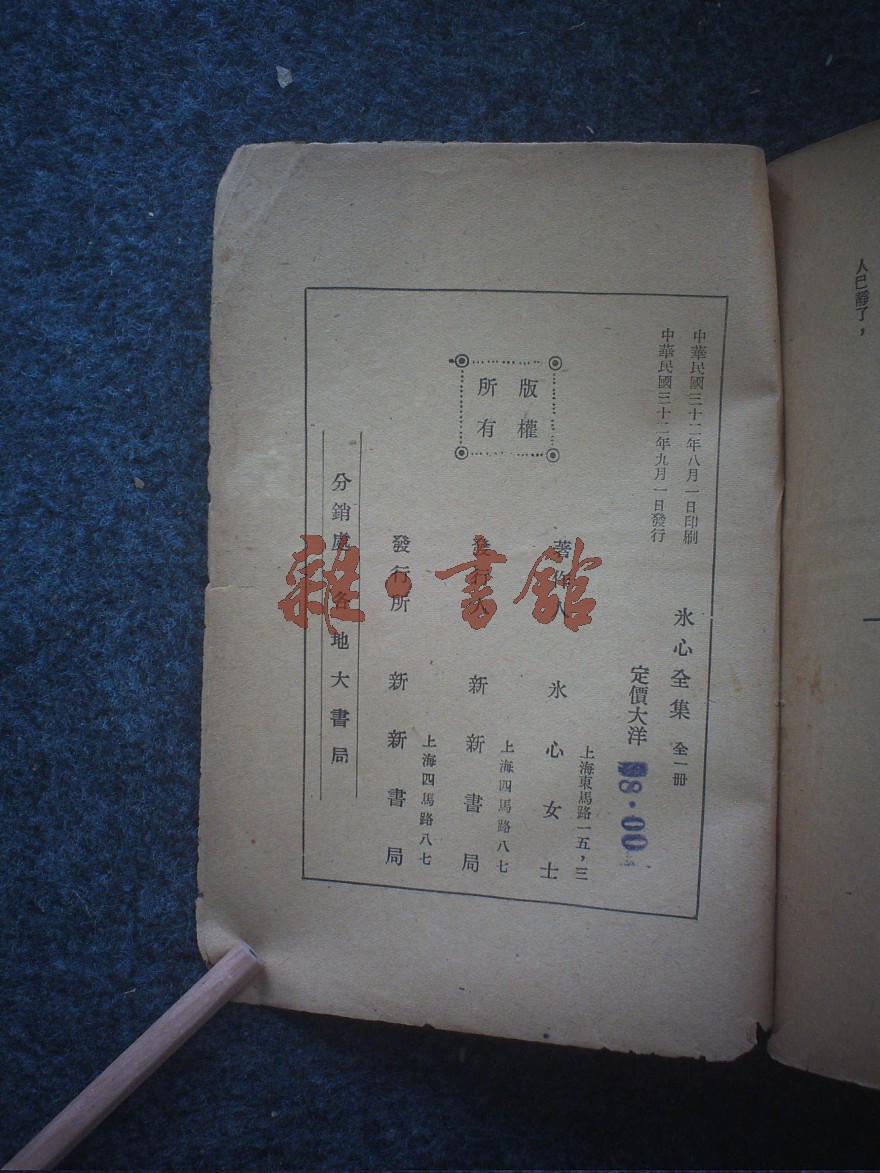 人已靜了，
中華民國三十二年八月一日印刷
中華民國三十二年九月一日發行
氷心全集 全一册
定價大洋 8.00
版權
所有
上海東馬路一五，三
著作人 氷心女士
上海四馬路八七
發行人 新新書局
上海四馬路八七
發行所 新新書局
分銷處 各地大書局
雜·書館